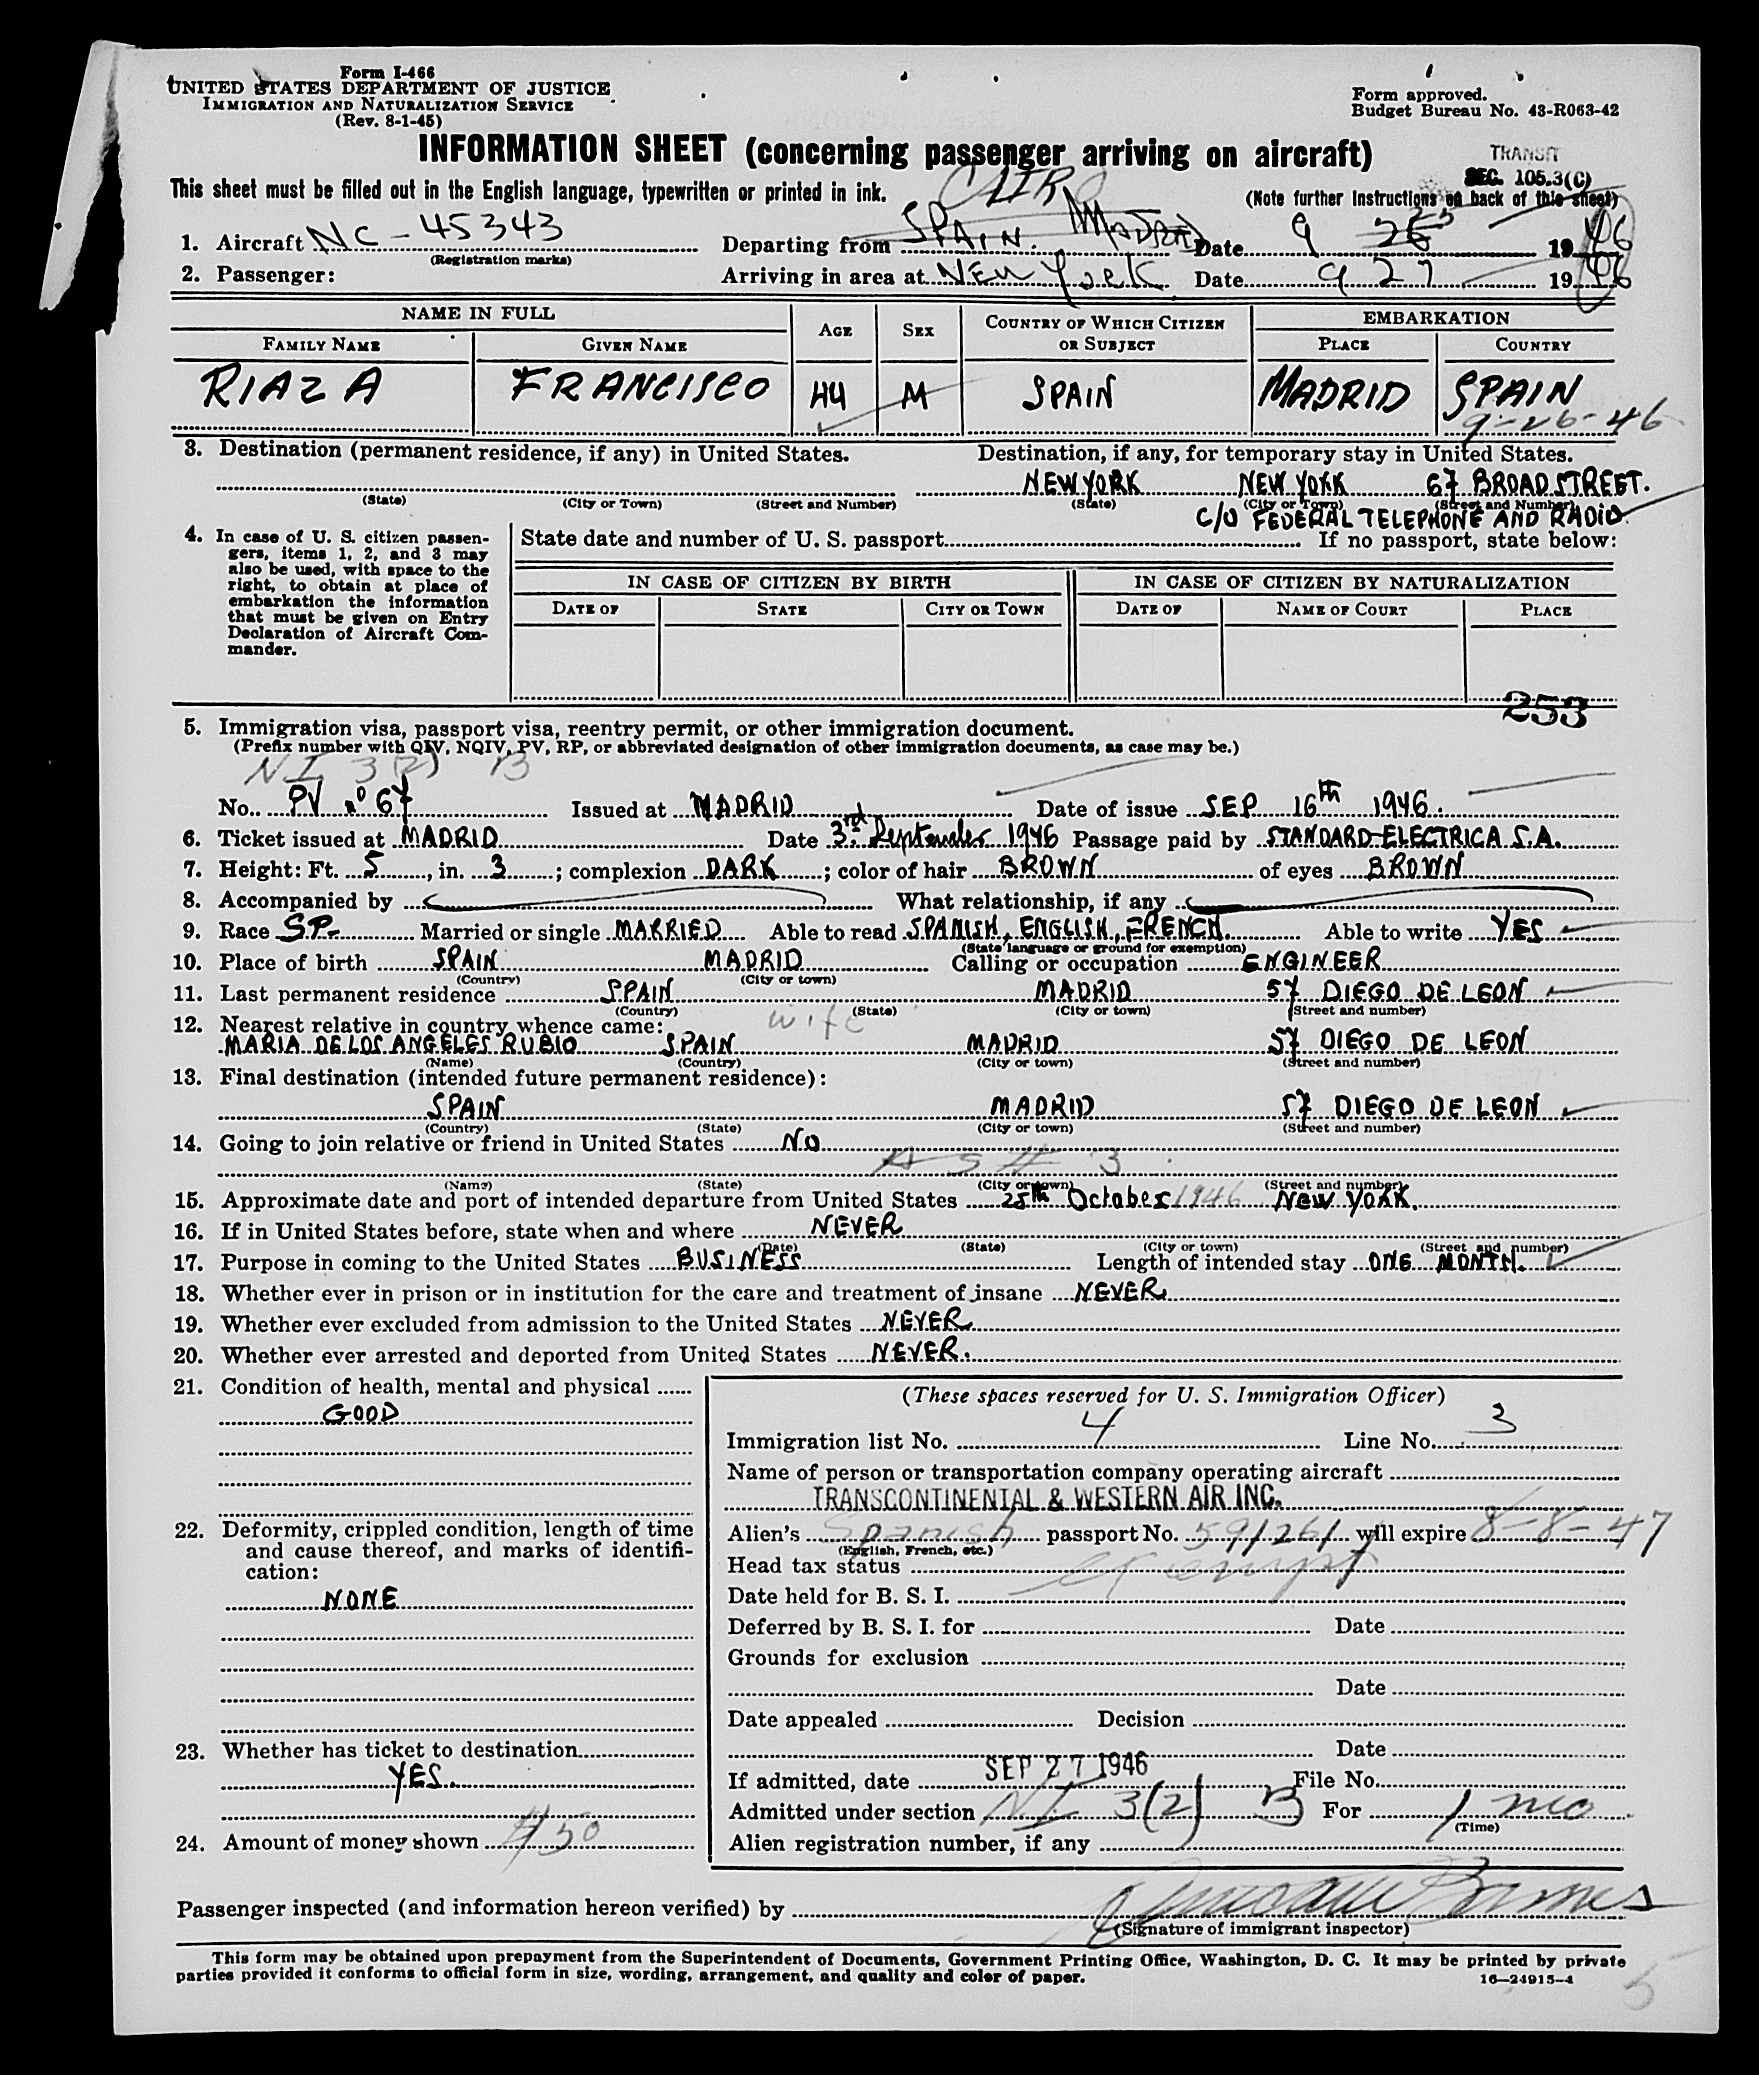 Form I-466
UNITED STATES DEPARTMENT OF JUSTICE
IMMIGRATION AND NATURALIZATION SERVICE
(Rev. 8-1-45)
Form approved.
Budget Bureau No. 43-R063-42
INFORMATION SHEET (concerning passenger arriving on aircraft)
TRANSIT
SEC. 105.3(C)
This sheet must be filled out in the English language, typewritten or printed in ink.
CAIRO
(Note further Instructions on back of this sheet)
1. Aircraft NC-45343 Departing from SPAIN. MADRID Date 9 26 25 1946
(Registration marks)
2. Passenger: Arriving in area at NEW York Date 9 27 1946
NAME IN FULL AGE SEX COUNTRY OF WHICH CITIZEN OR SUBJECT EMBARKATION
FAMILY NAME GIVEN NAME PLACE COUNTRY
RIAZA FRANCISCO 44 M SPAIN MADRID SPAIN
9-26-46
3. Destination (permanent residence, if any) in United States. Destination, if any, for temporary stay in United States.
NEW YORK NEW YORK 67 BROAD STREET.
(State) (City or Town) (Street and Number) (State) (City or Town) (Street and Number)
C/O FEDERAL TELEPHONE AND RADIO.
4. In case of U. S. citizen passen-
gers, items 1, 2, and 3 may
also be used, with space to the
right, to obtain at place of
embarkation the information
that must be given on Entry
Declaration of Aircraft Com-
mander.
State date and number of U. S. passport If no passport, state below:
IN CASE OF CITIZEN BY BIRTH IN CASE OF CITIZEN BY NATURALIZATION
DATE OF STATE CITY OR TOWN DATE OF NAME OF COURT PLACE
253
5. Immigration visa, passport visa, reentry permit, or other immigration document.
(Prefix number with QIV, NQIV, PV, RP, or abbreviated designation of other immigration documents, as case may be.)
NI 3(2) B
No. PV nº 67 Issued at MADRID Date of issue SEP. 16th 1946.
6. Ticket issued at MADRID Date 3rd September 1946 Passage paid by STANDARD ELECTRICA S.A.
7. Height: Ft. 5, in. 3; complexion DARK; color of hair BROWN of eyes BROWN
8. Accompanied by What relationship, if any
9. Race SP. Married or single MARRIED Able to read SPANISH, ENGLISH, FRENCH. Able to write YES
(State language or ground for exemption)
10. Place of birth SPAIN MADRID Calling or occupation ENGINEER
(Country) (City or town)
11. Last permanent residence SPAIN MADRID 57 DIEGO DE LEON
(Country) (State) (City or town) (Street and number)
12. Nearest relative in country whence came: wife
MARIA DE LOS ANGELES RUBIO SPAIN MADRID 57 DIEGO DE LEON
(Name) (Country) (City or town) (Street and number)
13. Final destination (intended future permanent residence):
SPAIN MADRID 57 DIEGO DE LEON
(Country) (State) (City or town) (Street and number)
14. Going to join relative or friend in United States NO
AS # 3
(Name) (State) (City or town) (Street and number)
15. Approximate date and port of intended departure from United States 25th October 1946 New YORK.
16. If in United States before, state when and where NEVER
(Date) (State) (City or town) (Street and number)
17. Purpose in coming to the United States BUSINESS Length of intended stay ONE MONTH.
18. Whether ever in prison or in institution for the care and treatment of insane NEVER
19. Whether ever excluded from admission to the United States NEVER
20. Whether ever arrested and deported from United States NEVER.
21. Condition of health, mental and physical
GOOD
22. Deformity, crippled condition, length of time
and cause thereof, and marks of identifi-
cation:
NONE
23. Whether has ticket to destination
YES.
24. Amount of money shown $50
(These spaces reserved for U. S. Immigration Officer)
Immigration list No. 4 Line No. 3
Name of person or transportation company operating aircraft
TRANSCONTINENTAL & WESTERN AIR INC.
Alien's Spanish passport No. 59/261 will expire 8-8-47
(English, French, etc.)
Head tax status exempt
Date held for B. S. I.
Deferred by B. S. I. for Date
Grounds for exclusion
Date
Date appealed Decision
Date
If admitted, date SEP 27 1946 File No.
Admitted under section NI 3(2) B For 1 mo
(Time)
Alien registration number, if any
Passenger inspected (and information hereon verified) by Barnes
(Signature of immigrant inspector)
This form may be obtained upon prepayment from the Superintendent of Documents, Government Printing Office, Washington, D. C. It may be printed by private
parties provided it conforms to official form in size, wording, arrangement, and quality and color of paper.
16—24915-4
5